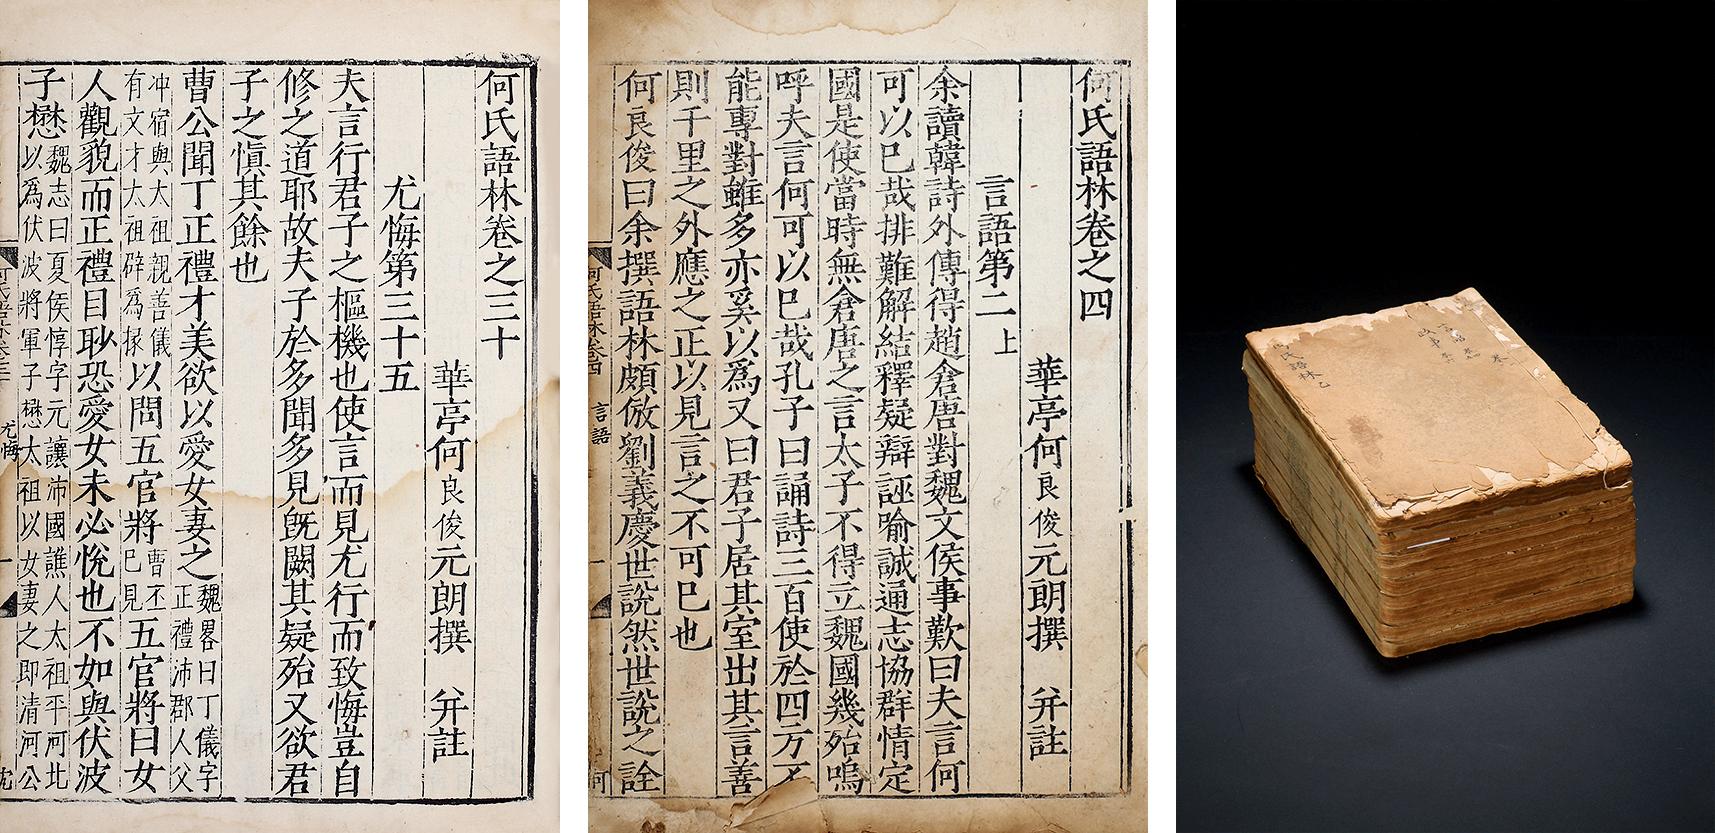 何氏語林卷之三十
華亭何良俊元朗撰 并註
尤悔第三十五
夫言行君子之樞機也使言而見尤行而致悔豈自
修之道耶故夫子於多聞多見旣闕其疑殆又欲君
子之愼其餘也
曹公聞丁正禮才美欲以愛女妻之魏畧曰丁儀字正禮沛郡人父
冲宿與大祖親善儀有文才太祖辟爲掾以問五官將曹丕已見五官將曰女
人觀貌而正禮目眇恐愛女未必悅也不如與伏波
子懋魏志曰夏侯惇字元讓沛國譙人太祖平河北以爲伏波將軍子懋太祖以女妻之即清河公
尤悔
何氏語林卷之四
華亭何良俊元朗撰 并註
言語第二上
余讀韓詩外傳得趙倉唐對魏文侯事歎曰夫言何
可以已哉排難解結釋疑辯誣喻誠通志協群情定
國是使當時無倉唐之言太子不得立魏國幾殆嗚
呼夫言何可以已哉孔子曰誦詩三百使於四方不
能專對雖多亦奚以爲又曰君子居其室出其言善
則千里之外應之正以見言之不可已也
何良俊曰余撰語林頗倣劉義慶世說然世說之詮
何氏語林卷四 言語 一 何
何氏語林